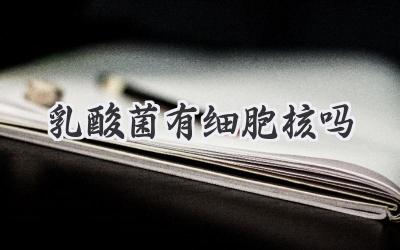 乳酸菌有细胞核吗